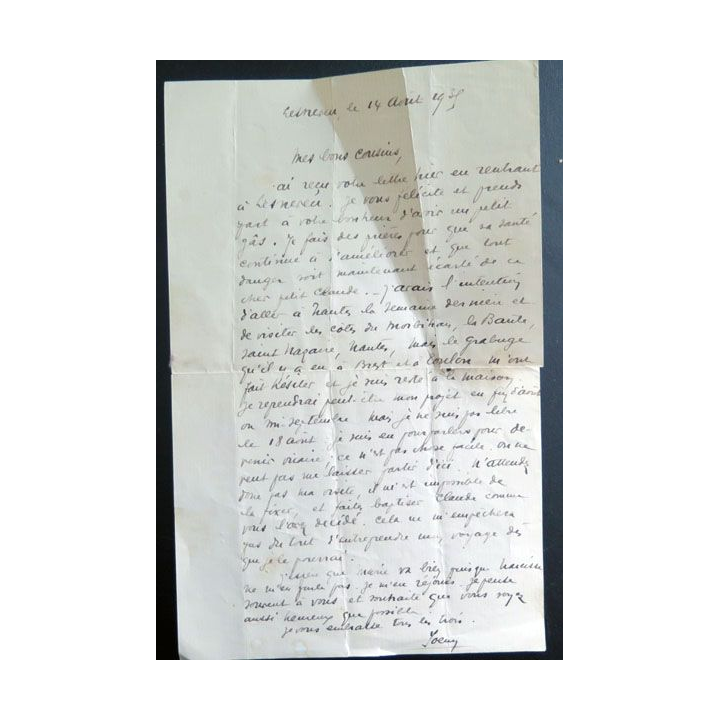 Lesneven, le 14 Août 1935
Mes bons cousins,
ai reçu votre lettre hier en rentrant
à Lesneven. Je vous félicite et prends
part à votre bonheur d'avoir un petit
gâs. Je fais des prières pour que sa santé
continue à s'améliorer et que tout
danger soit maintenant écarté de ce
cher petit Claude. _ J'avais l'intention
d'aller à Nantes la semaine dernière et
de visiter les côtes du Morbihan, la Baule,
Saint Nazaire, Nantes, mais le grabuge
qu'il y a eu à Brest et à Toulon m'ont
fait hésiter et je suis resté à la maison.
Je reprendrai peut-être mon projet en fin d'août
ou mi septembre mais je ne suis pas libre
le 18 août. Je suis en pourparlers pour de-
venir vicaire; ce n'est pas chose facile. On ne
veut pas me laisser partir d'ici. N'attendez
donc pas ma visite, il m'est impossible de
la fixer, et faites baptiser Claude comme
vous l'avez décidé. Cela ne m'empêchera
pas du tout d'entreprendre mon voyage dès
que je le pourrai.
que Marie va bien puisque
ne m'en parle pas. Je m'en réjouis. Je pense
souvent à vous et souhaite que vous soyez
aussi heureux que possible.
Je vous embrasse tous les trois.